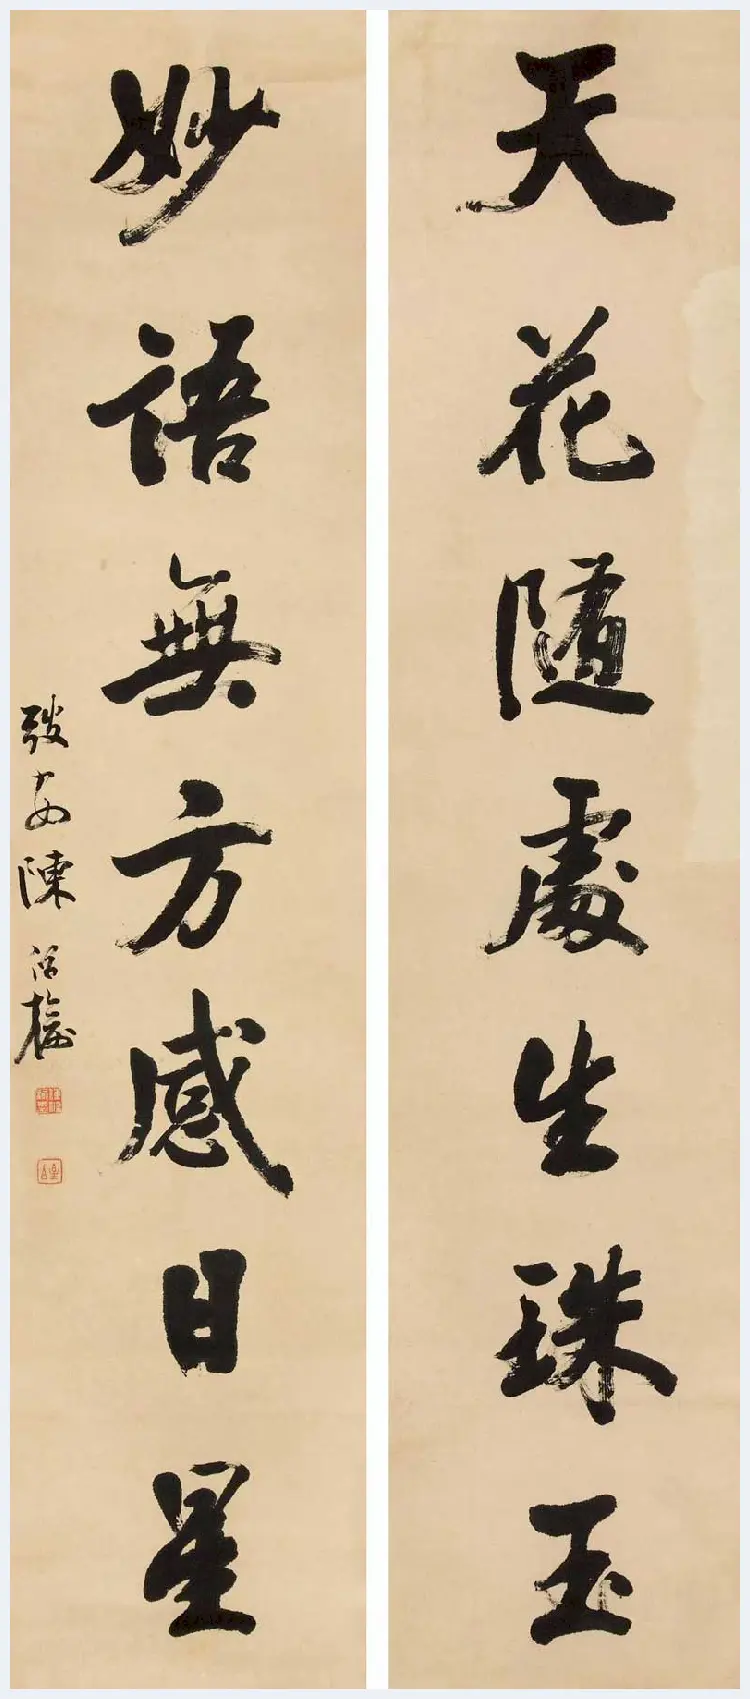 天花隨處生珠玉
妙語無方感日星
陳